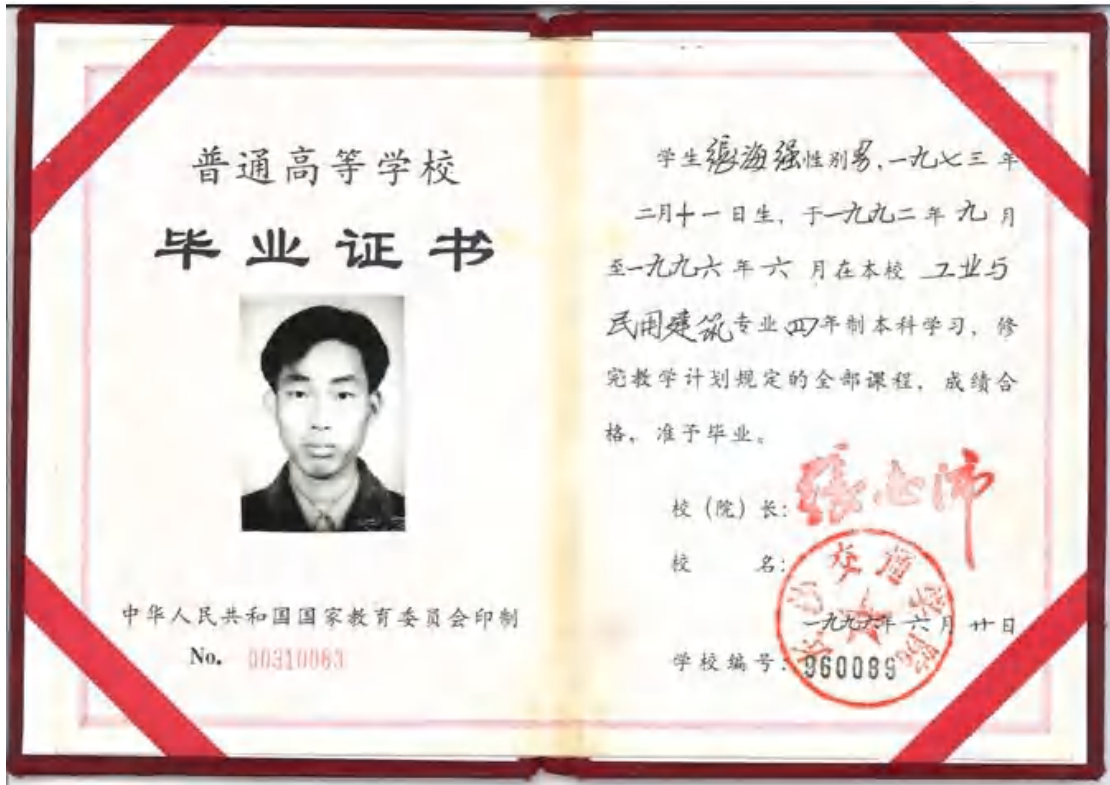 普通高等学校
毕业证书
中华人民共和国国家教育委员会印制
No. 00310083
学生張海强性别男,一九七三年
二月十一日生,于一九九二年九月
至一九九六年六月在本校 工业与
民用建筑专业四年制本科学习,修
完教学计划规定的全部课程,成绩合
格,准予毕业。
校(院)长:
校 名:
交通学院
一九九六年六月廿日
学校编号:960089